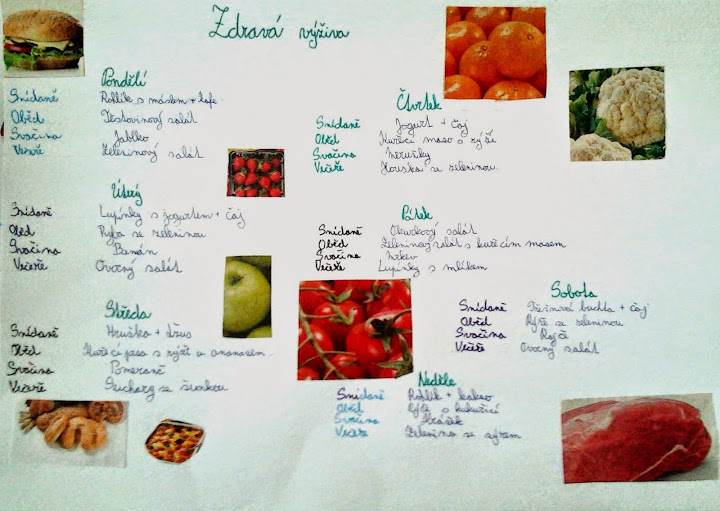 Zdravá výživa
Pondělí
Snídaně Rohlík s máslem + kafe
Oběd Těstovinový salát
Svačina Jablko
Večeře Zeleninový salát
Úterý
Snídaně Lupínky s jogurtem + čaj
Oběd Ryba se zeleninou
Svačina Banán
Večeře Ovocný salát
Středa
Snídaně Hruška + džus
Oběd Kuřecí prsa s rýží a ananasem
Svačina Pomeranč
Večeře Suchary se šunkou
Čtvrtek
Snídaně Jogurt + čaj
Oběd Kuřecí maso s rýží
Svačina Meruňky
Večeře Houska se zeleninou
Pátek
Snídaně Okurkový salát
Oběd Zeleninový salát s kuřecím masem
Svačina Mrkev
Večeře Lupínky s mlíkem
Sobota
Snídaně buchta + čaj
Oběd Rýže se zeleninou
Svačina Rajče
Večeře Ovocný salát
Neděle
Snídaně Rohlík + kakao
Oběd Rýže s kukuřicí
Svačina Hrášek
Večeře Zelenina se sýrem